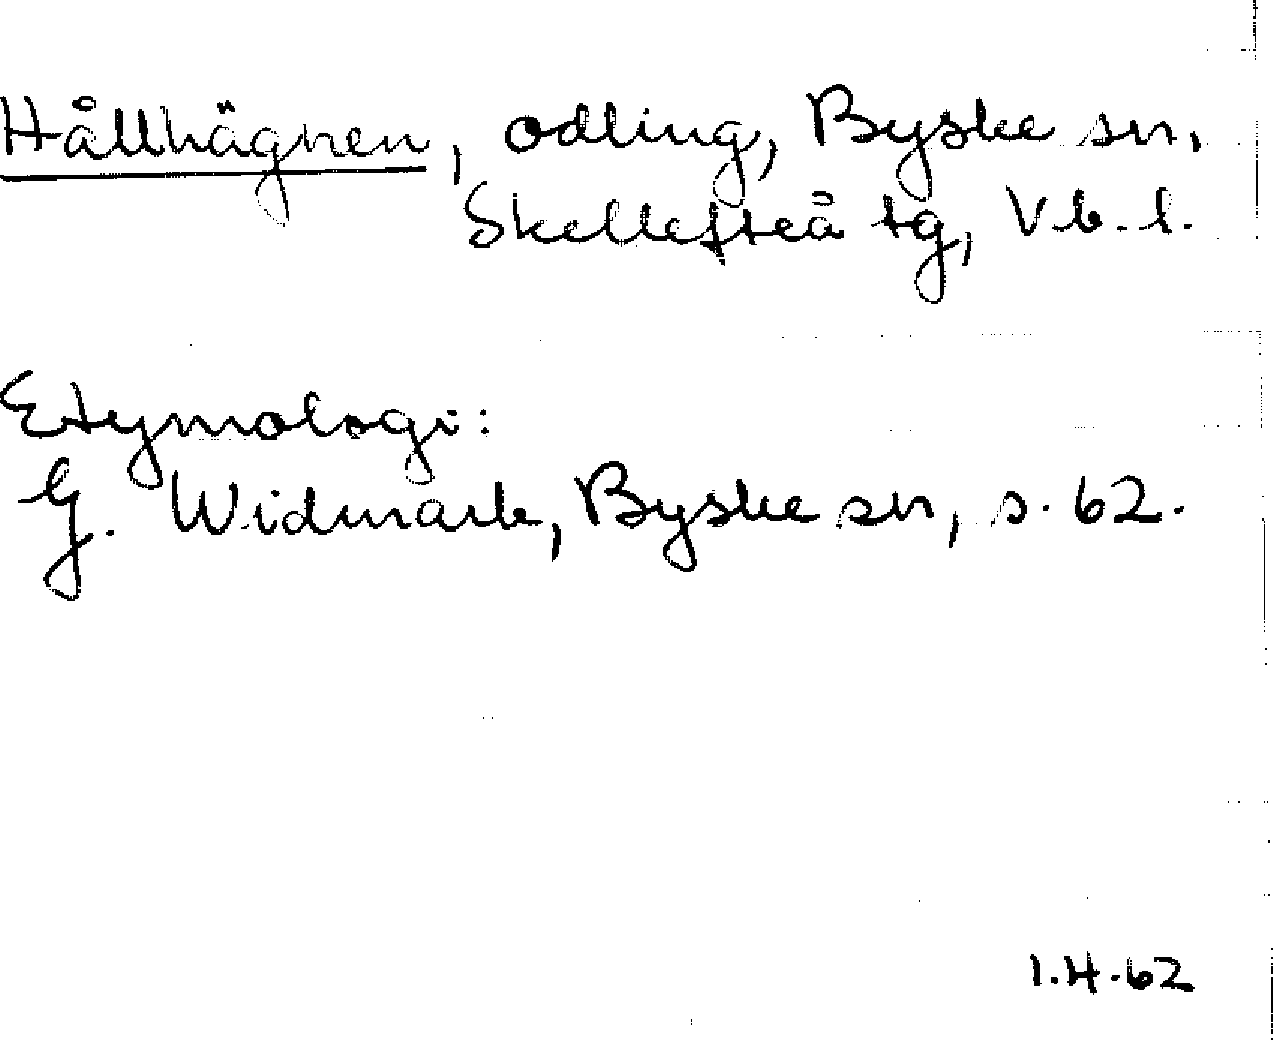 Hållhägnen, odling, Byske sn,
Skellefteå tg, Vb. l.
Etymologi:
G. Widmark, Byske sn, s. 62.
I.H.62